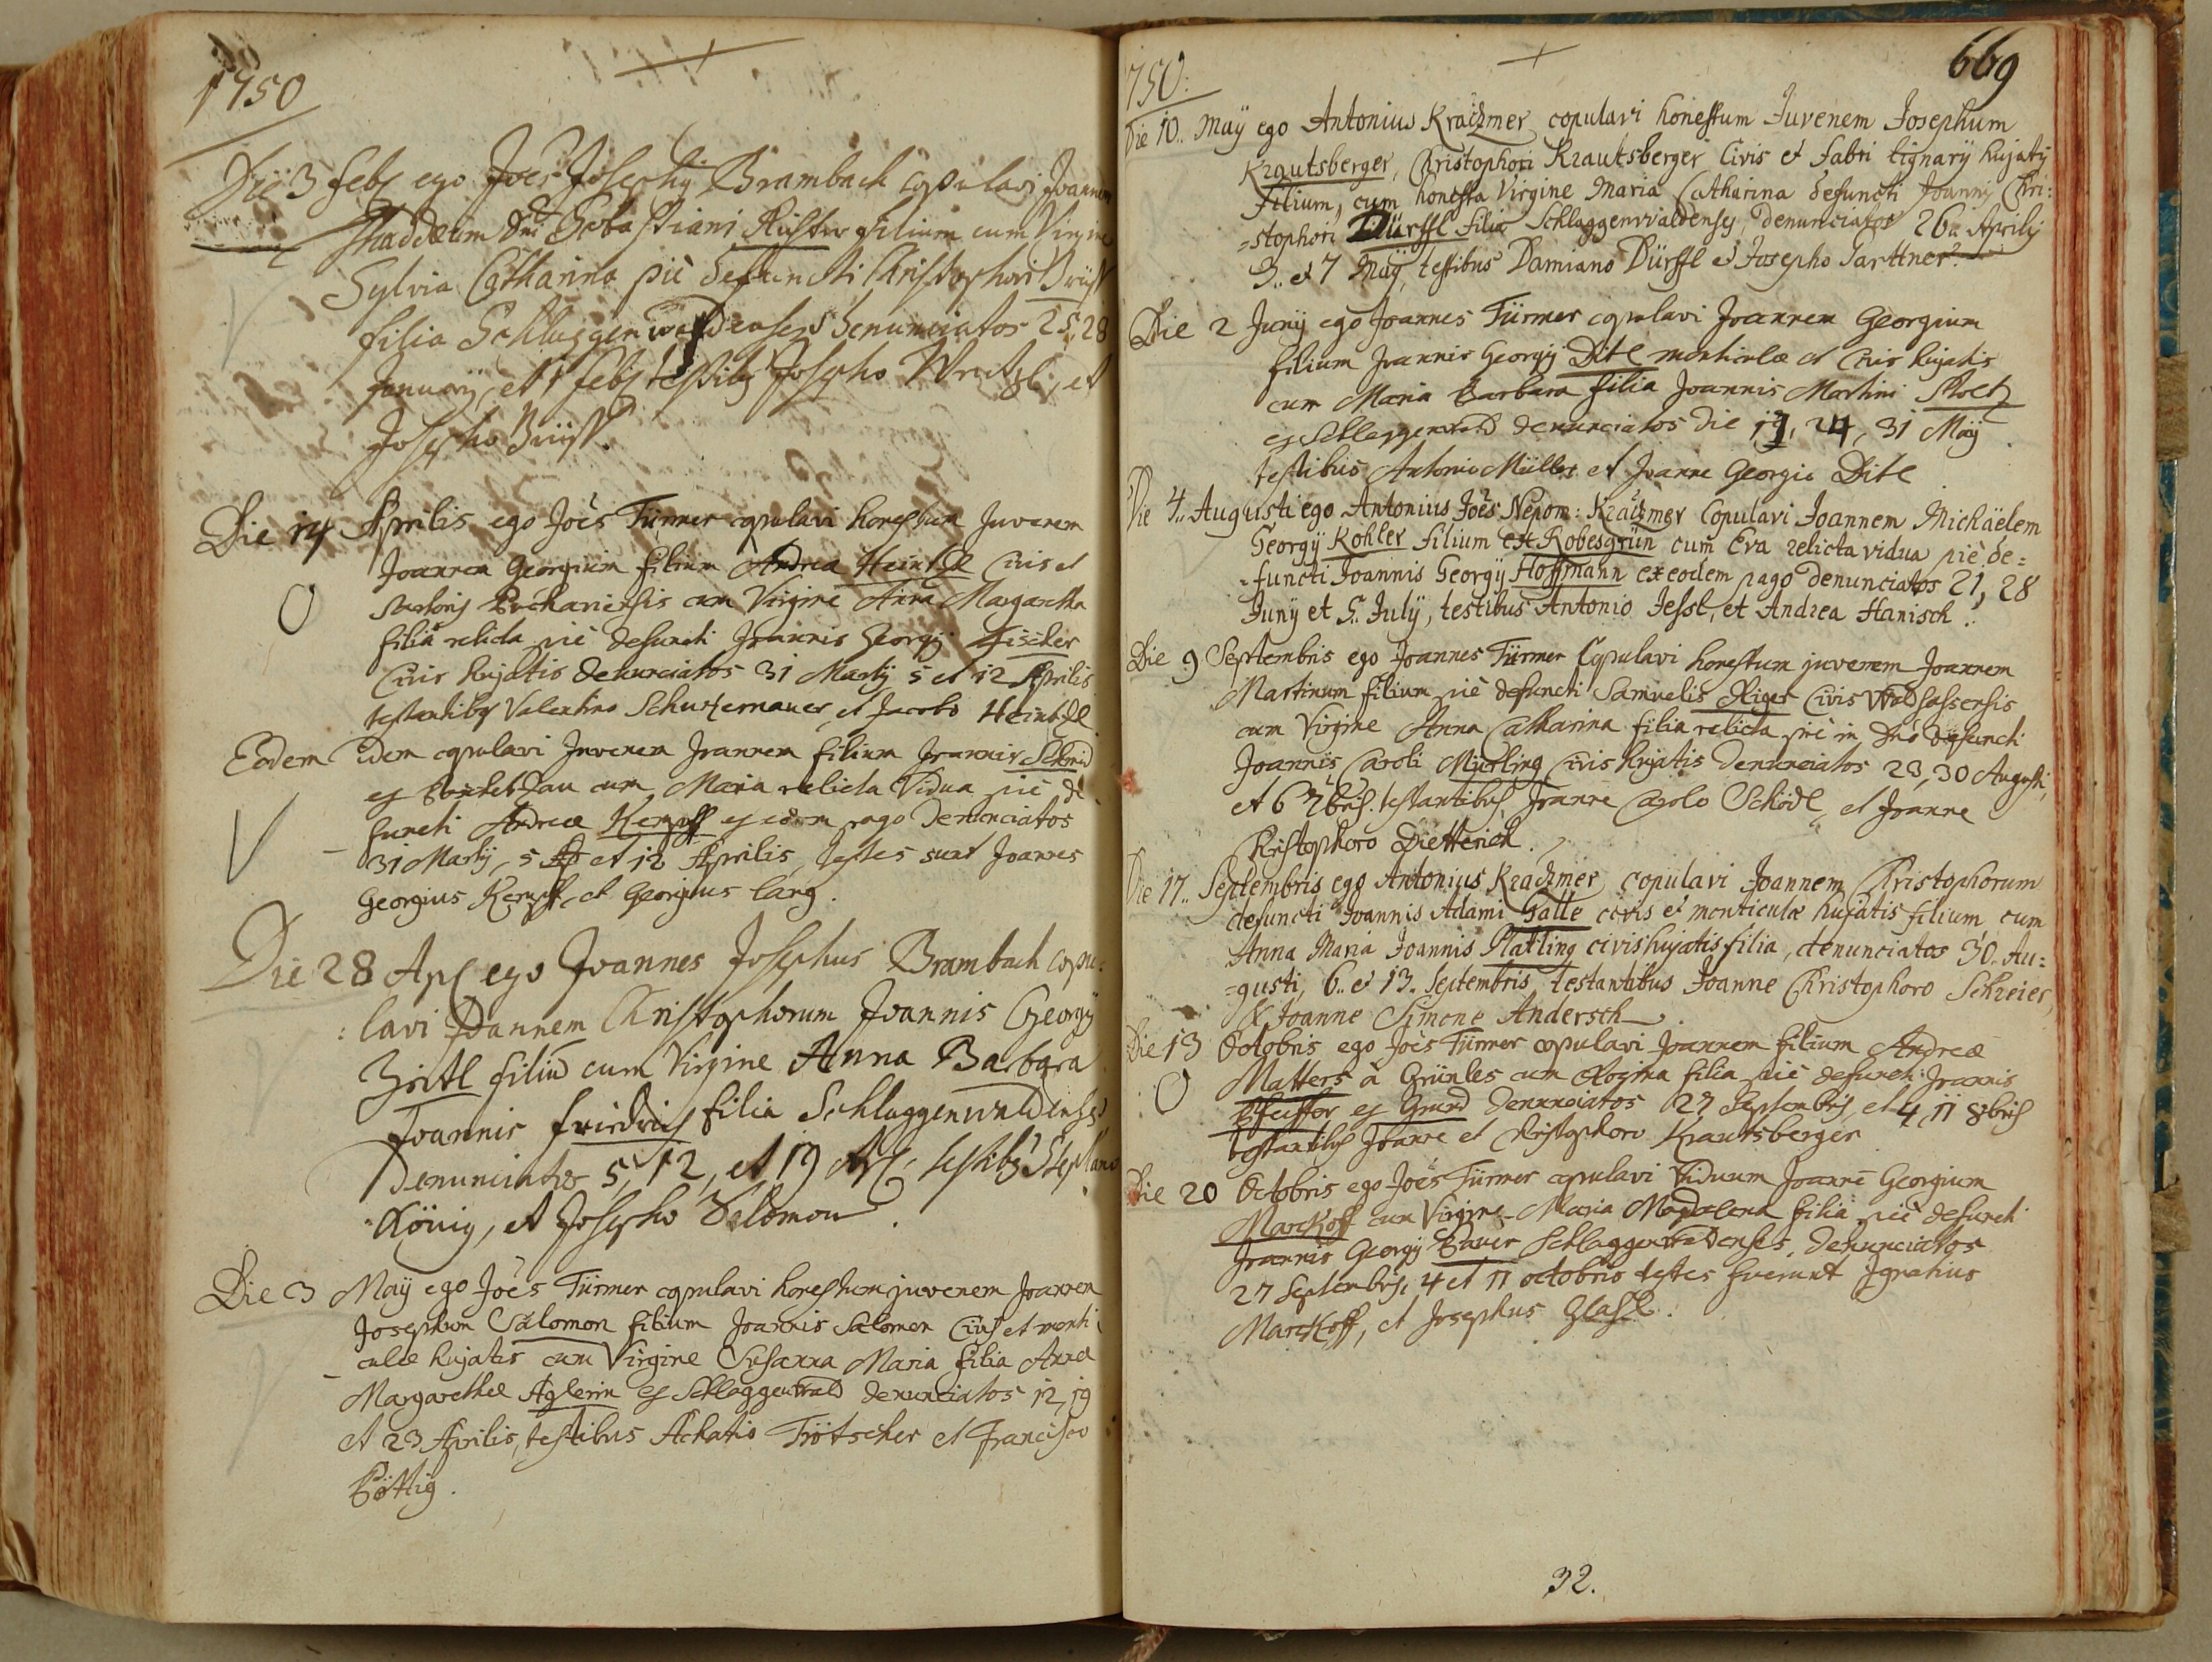 1750
Die 3 Feb ego Joēs Josephy Brambach copulavi Joannem
Thaddæum Dni Sebastiani Richter filium cum Virgine
Sylvia Catharina pie defuncti Christophori
filia Schlaggenwaldensis denunciatos 25, 28
January, et 1 feb testiby Josepho et
Josepho
Die 14 Aprilis ego Joēs Türmer copulavi honestum Juvenem
Joannem Georgium filium Andrea Heintzl Civis et
cum Virgine Anna Margaretha
filia relicta pie defuncti Joannis Georgy Fischer
Civis hujatis denunciatos 31 Marty 5 et 12 Aprilis
testantiby Valentino et Jacobo Heintzl
Eodem idem copulavi Juvenem Joannem filium Joannis Schmid
ex cum Maria relicta Vidua pie de
functi Andreæ Kempff ex eodem pago denunciatos
31 Marty, 5 et 12 Aprilis, testes sunt Joannes
Georgius Kempff, et Georgius Lang.
Die 28 Apl ego Joannes Josephus Brambach copu:
:lavi Joannem Christophorum Joannis Georgy
filiū cum Virgine Anna Barbara
Joannis Fridrich filia Schlaggenwaldensis
denunciatos 5, 12, et 19 Apl. testiby Stephano
König, et Josepho Salomon.
Die 3 Maÿ ego Joēs Türmer copulavi honestum juvenem Joannem
Josephum Salomon filium Joannis Salomon Civis et monti
culæ hujatis cum Virgine Susanna Maria filia Annæ
Margarethæ Aglerin ex Schlaggenwald denunciatos 12, 19
et 23 Aprilis, testibus Achatio Trötscher et Francisco
Pöttig.
669
1750.
Die 10.. Maÿ ego Antonius Kraizmer copulavi honestum Juvenem Josephum
Krautsberger, Christophori Krautsberger Civis et Fabri lignarÿ hujaty
filium, cum honesta Virgine Maria Catharina defuncti Joanny Chri:
=stophori Dürffl filia Schlaggenwaldensy, denunciatos 26.. Aprily
3.. et 7 Maÿ, testibus Damiano Dürffl et Josepho Parttner.
Die 2 Junÿ ego Joannes Türmer copulavi Joannem Georgium
filium Joannis Georgÿ Ditl monticulæ et Civis hujatis
cum Maria Barbara filia Joannis Martini
ex Schlaggenwald denunciatos die 17, 24, 31 Maÿ
testibus Antonio Müller et Joanne Georgio Ditl
Die 4.. Augusti ego Antonius Joēs Nepom: Kraizmer Copulavi Joannem Michäelem
Georgÿ Kohler filium ex Robesgrün cum Eva relicta vidua pie de=
=functi Joannis Georgÿ Hoffmann ex eodem pago denunciatos 21, 28
Junÿ et 5.. Julÿ, testibus Antonio Jessl, et Andrea Hanisch.
Die 9 Septembris ego Joannes Türmer Copulavi honestum juvenem Joannem
Martinum filium pie defuncti Samuelis Civis Waldsassensis
cum Virgine Anna Catharina filia relicta pie in Dno defuncti
Joannis Caroli Civis hujatis denunciatos 23, 30 Augusti,
et 6 7bris. testantibus Joanne Carolo Schödl, et Joanne
Christophoro Dietterich.
Die 17.. Septembris ego Antonius Kraizmer copulavi Joannem Christophorum
defuncti Joannis Adami Galle civis et monticulæ hujatis filium, cum
Anna Maria Joannis Platling civis hujatis filia, denunciatos 30. Au=
=gusti, 6.. et 13. Septembris, testantibus Joanne Christophoro Schreier,
& Joanne Simone Andersch.
Die 13 Octobris ego Joēs Türmer copulavi Joannem filium Andreæ
Matters à Grünles cum Rosina filia pie defuncti Joannis
Pfeiffer ex Grund denunciatos 27 Septembris, et 4, 11 8bris
testantiby Joanne et Christophoro Krautsberger
Die 20 Octobris ego Joēs Türmer copulavi Viduum Joannē Georgium
Marckoff cum Virgine Maria Magdalena filia pie defuncti
Joannis Georgÿ Bauer Schlaggenwaldensis, denunciatos
27 Septembris, 4 et 11 octobris testes fuerunt Ignatius
Marckoff, et Josephus Glassl.
32.